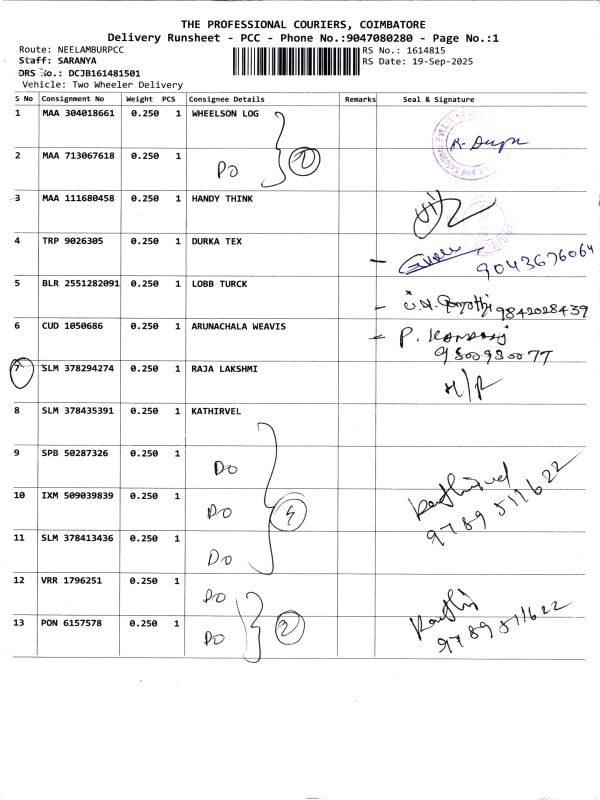 THE PROFESSIONAL COURIERS, COIMBATORE
Delivery Runsheet - PCC - Phone No.:9047080280 - Page No.:1
Route: NEELAMBURPCC RS No.: 1614815
Staff: SARANYA RS Date: 19-Sep-2025
DRS No.: DCJB161481501
Vehicle: Two Wheeler Delivery
S No Consignment No Weight PCS Consignee Details Remarks Seal & Signature
1 MAA 304018661 0.250 1 WHEELSON LOG
2 MAA 713067618 0.250 1 DO 2
3 MAA 111680458 0.250 1 HANDY THINK
4 TRP 9026305 0.250 1 DURKA TEX
9043676064
5 BLR 2551282091 0.250 1 LOBB TURCK
9842028439
6 CUD 1050686 0.250 1 ARUNACHALA WEAVIS P.
9800930077
7 SLM 378294274 0.250 1 RAJA LAKSHMI H/R
8 SLM 378435391 0.250 1 KATHIRVEL
9 SPB 50287326 0.250 1 DO
10 IXM 509039839 0.250 1 DO 4 Kathirvel
9789511622
11 SLM 378413436 0.250 1 DO
12 VRR 1796251 0.250 1 DO Kathi
13 PON 6157578 0.250 1 DO 2 9789511622